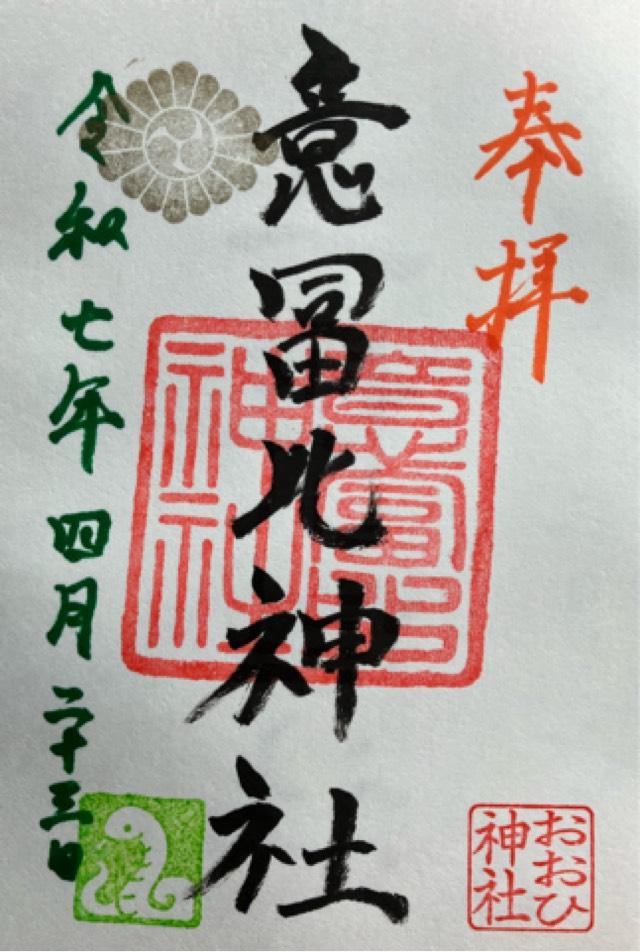 奉拝
意冨比神社
意富比
神社
令和七年四月二十三日
おおひ
神社